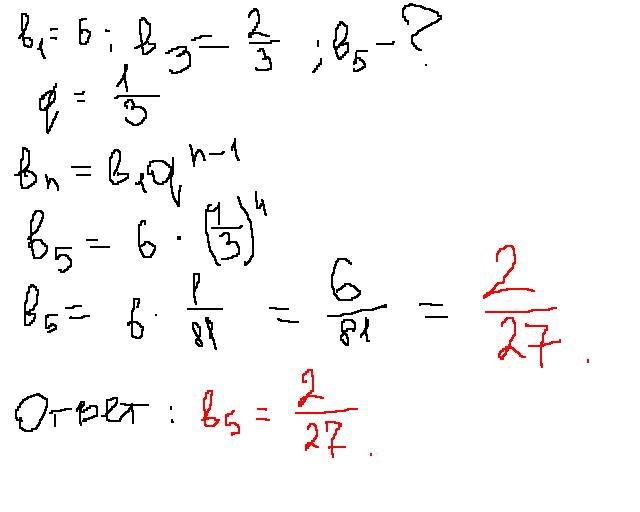 в₁ = 6 ; в₃ = 2/3 ; в₅ - ?
q = 1/3
вₙ = в₁qⁿ⁻¹
в₅ = 6 · (1/3)⁴
в₅ = 6 · 1/81 = 6/81 = 2/27 .
Ответ : в₅ = 2/27 .